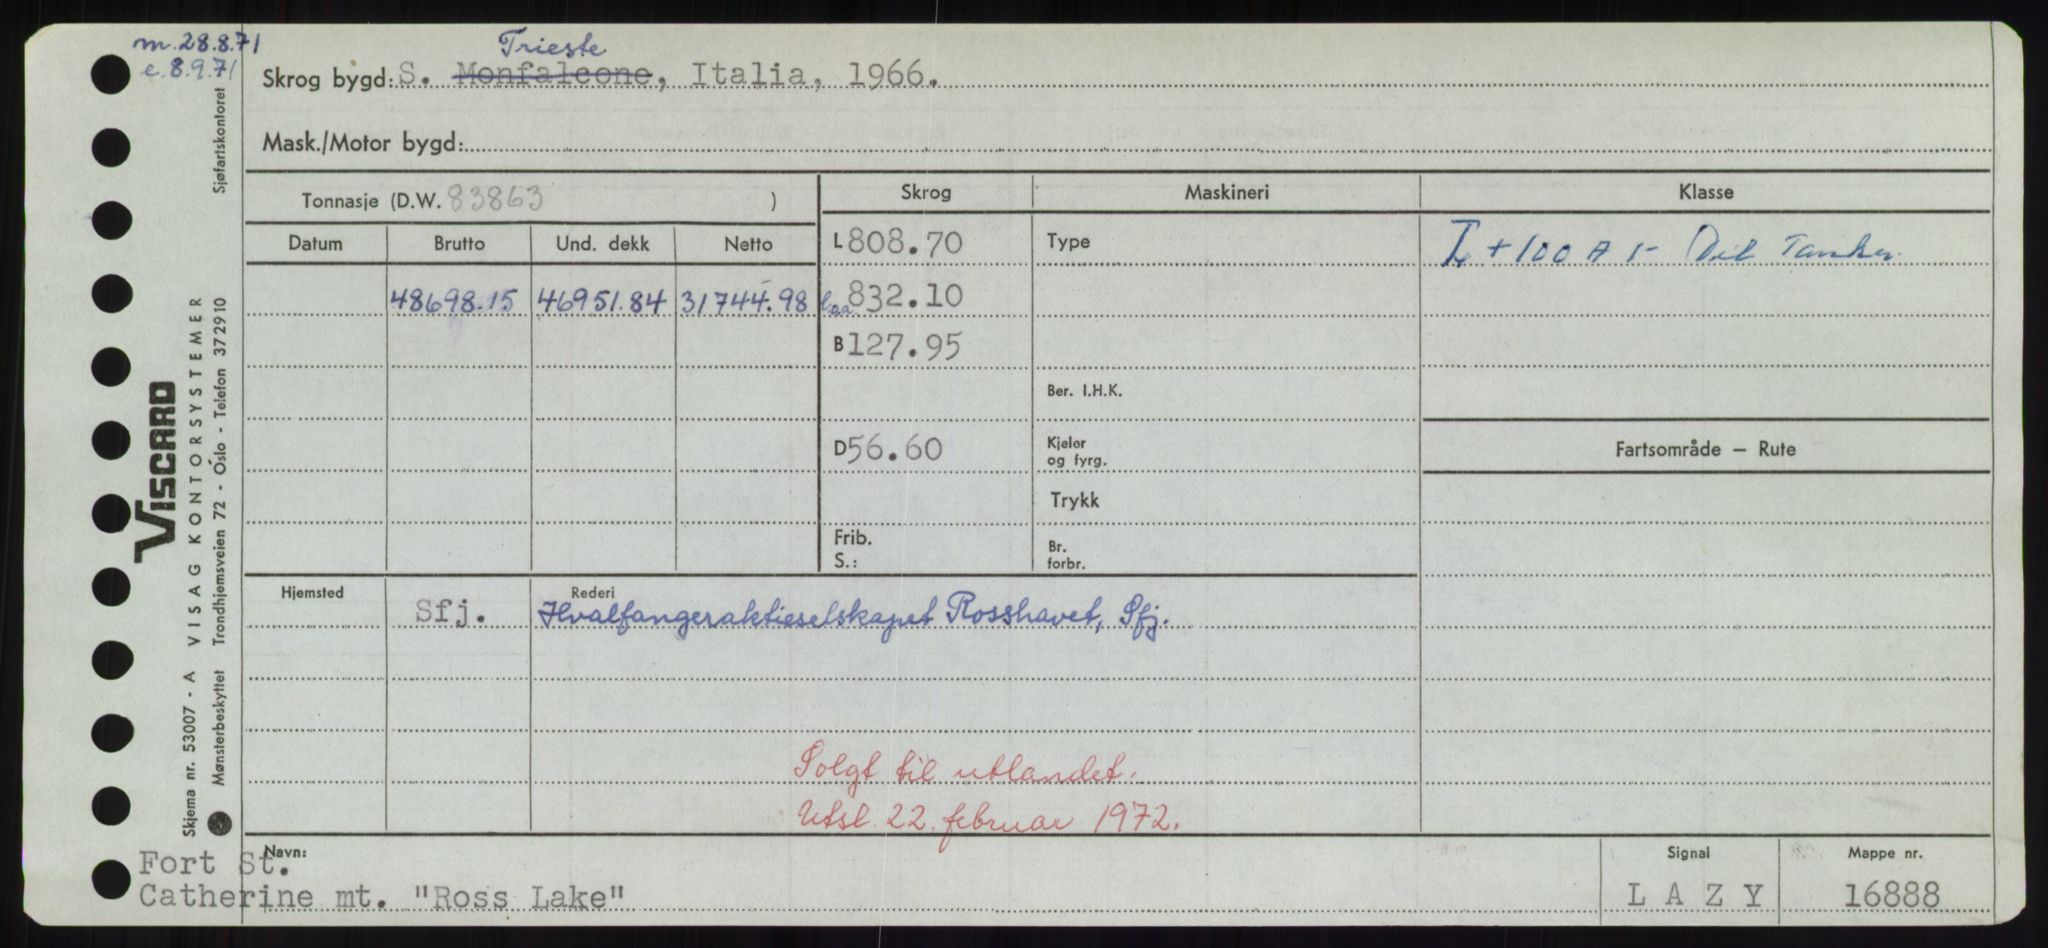 m. 28.8.71
e. 8.9.71
Trieste
Skrog bygd: S. Monfalcone, Italia, 1966.
Mask./Motor bygd:
Tonnasje (D.W. 83863 )
Skrog
Maskineri
Klasse
Datum Brutto Und. dekk Netto
L 808.70
Type
I + 100 A 1 - Oil Tanker
48698.15 46951.84 31744.98
l.o.a. 832.10
B 127.95
Ber. I.H.K.
D 56.60
Kjeler
og fyrg.
Fartsområde — Rute
Trykk
Frib.
S.:
Br.
forbr.
Hjemsted
Rederi
Sfj. Hvalfangeraktieselskapet Rosshavet, Sfj.
Solgt til utlandet.
Utsl. 22. februar 1972.
Navn:
Fort St.
Catherine mt. "Ross Lake"
Signal
L A Z Y
Mappe nr.
16888
VISCARD
VISAG KONTORSYSTEMER
Skjema nr. 53007 - A
Mønsterbeskyttet Trondhjemsveien 72 - Oslo - Telefon 372910
Sjøfartskontoret